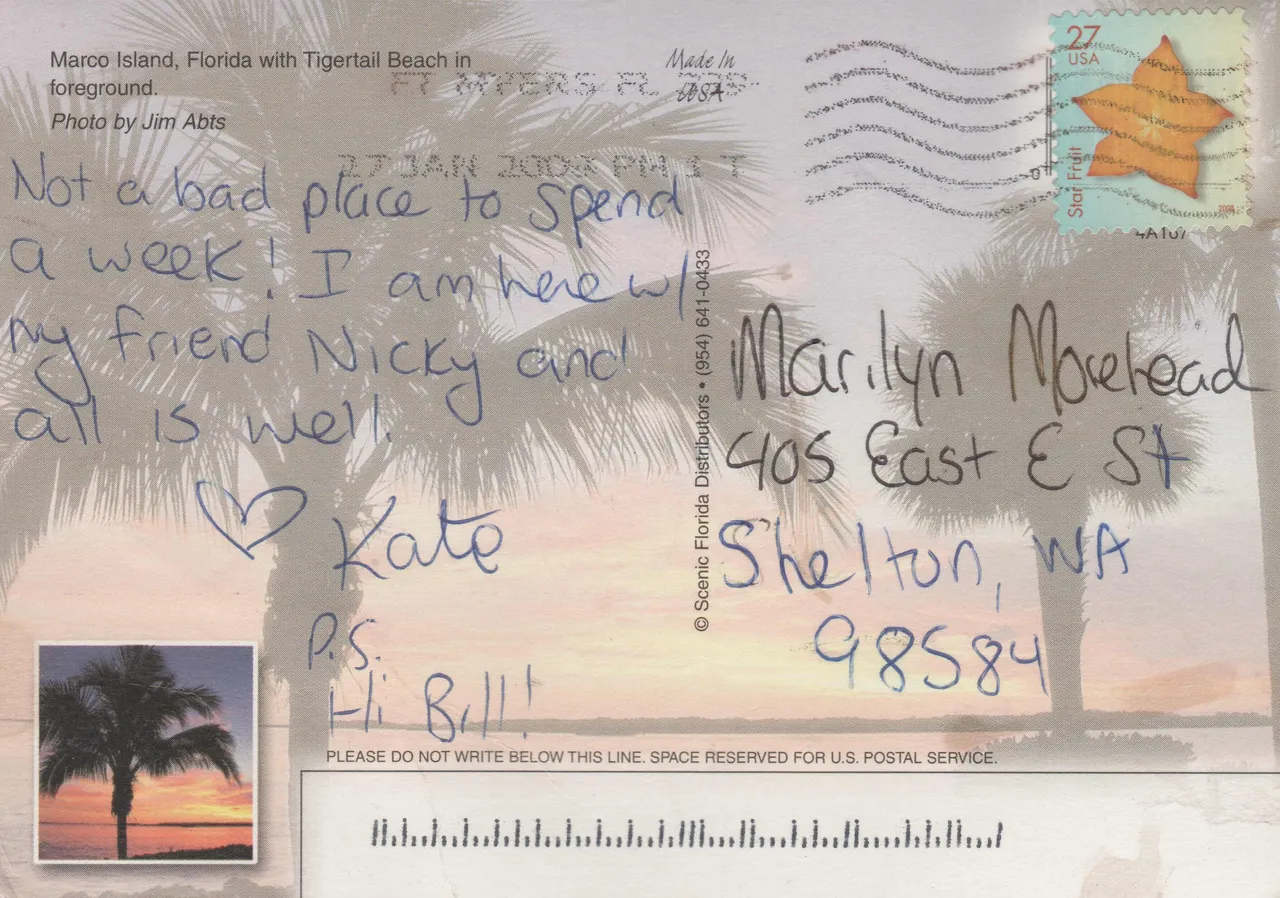 Marco Island, Florida with Tigertail Beach in
foreground.
Photo by Jim Abts
Made In
USA
FT MYERS FL 339
27 JAN 2009 PM 3 T
27
USA
Star Fruit
2008
Not a bad place to spend
a week! I am here w/
my friend Nicky and
all is well.
Kate
P.S.
Hi Bill!
© Scenic Florida Distributors • (954) 641-0433
Marilyn Morehead
405 East E St
Shelton, WA
98584
PLEASE DO NOT WRITE BELOW THIS LINE. SPACE RESERVED FOR U.S. POSTAL SERVICE.